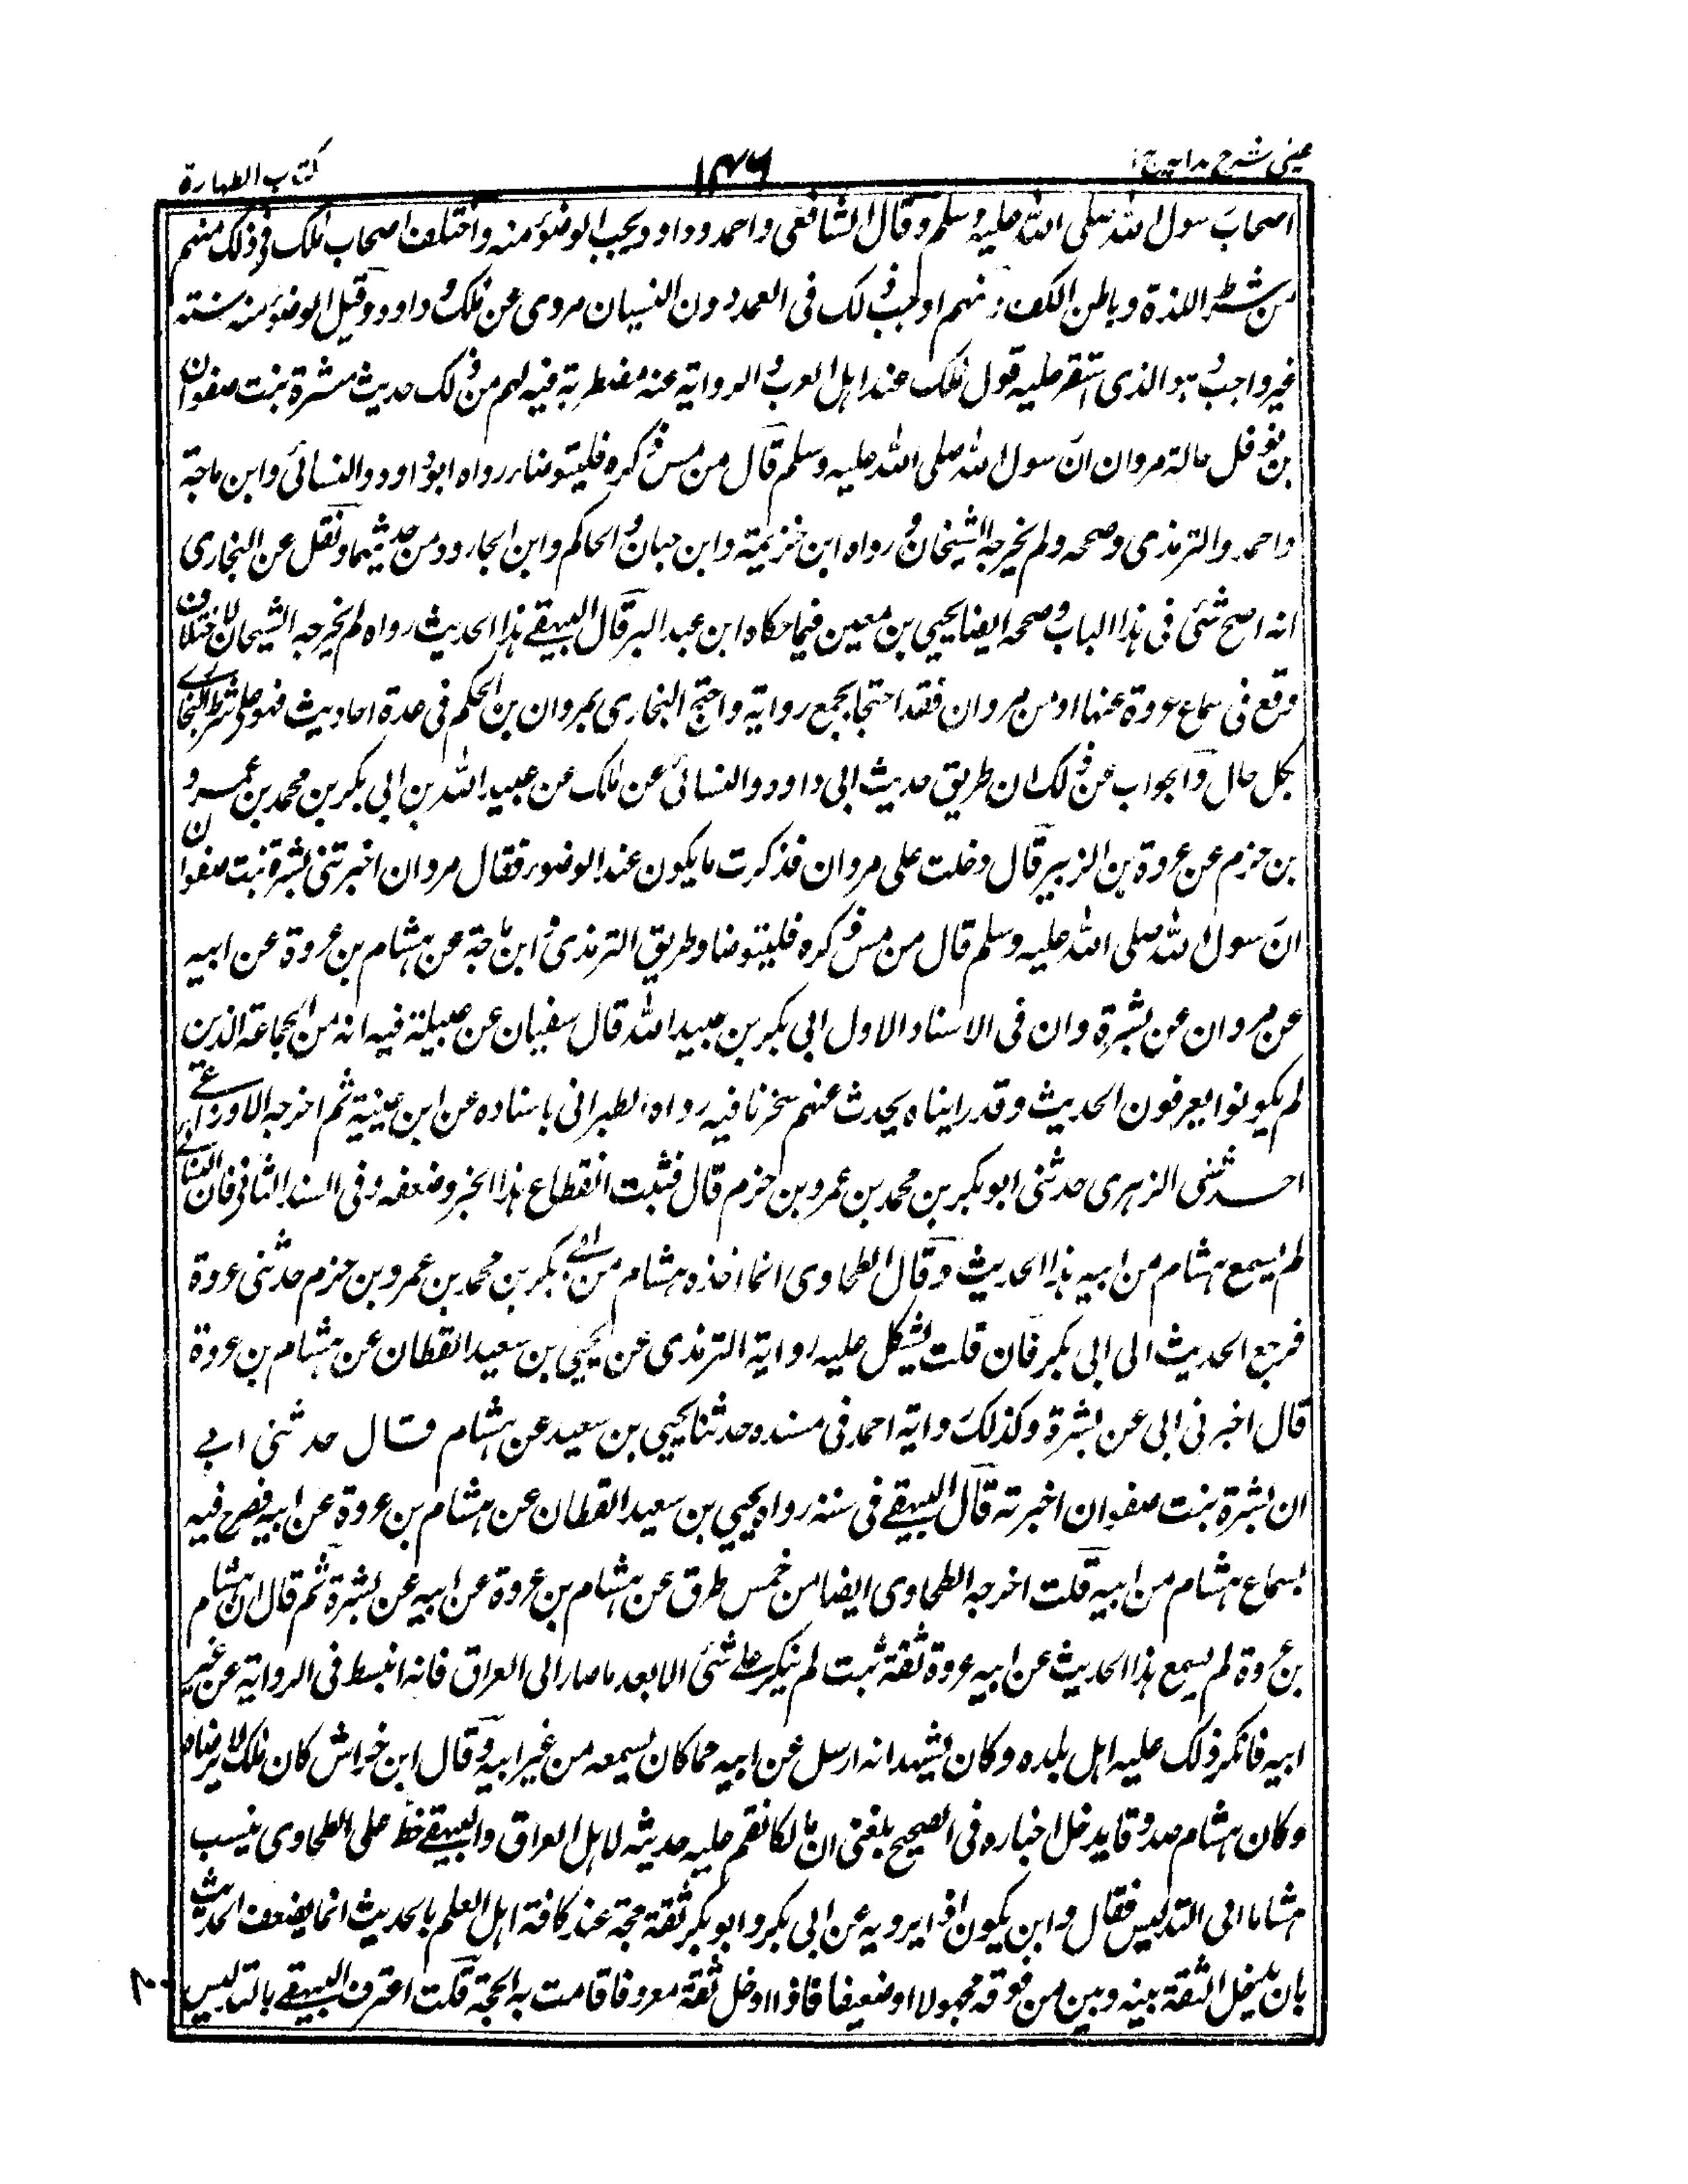 عینی شرح ہدایہ ج۱
۱۴۶
کتاب الطہارۃ
اصحاب رسول اللہ صلی اللہ علیہ وسلم وقال الشافعی واحمد وداود یجب الوضوء منہ واختلف اصحاب ملک فی ذلک منہم
من شرط اللذۃ وباطن الکف ومنہم اوجب ذلک فی العمد دون النسیان مروی عن ملک وداود وقیل الوضوء منہ سنتہ
غیر واجب وہو الذی استقر علیہ قول ملک عند اہل الغرب والروایۃ عنہ مضطربۃ فیہ لہم من ذلک حدیث بشرۃ بنت صفوان
بن نوفل خالۃ مروان ان رسول اللہ صلی اللہ علیہ وسلم قال من مس ذکرہ فلیتوضاء رواہ ابو داود والنسائی وابن ماجۃ
واحمد والترمذی وصححہ ولم یخرجہ الشیخان ورواہ ابن خزیمۃ وابن حبان والحاکم وابن الجارود من حدیثہما ونقل عن البخاری
انہ اصح شئی فی ہذا الباب وصححہ ایضا یحیی بن معین فیما حکاہ ابن عبد البر قال البیہقے ہذا الحدیث رواہ لم یخرجہ الشیخان لاختلاف
وقع فی سماع عروۃ عنہا او من مروان فقد احتجا بجمع روایۃ واحتج البخاری بمروان بن الحکم فی عدۃ احادیث فہو علی شرط البخاری
بکل حال والجواب عن ذلک ان طریق حدیث ابی داود والنسائی عن ملک عن عبید اللہ بن ابی بکر بن محمد بن عمرو
بن حزم عن عروۃ بن الزبیر قال دخلت علی مروان فذکرت ما یکون عند الوضوء فقال مروان اخبرتنی بشرۃ بنت صفوان
ان رسول اللہ صلی اللہ علیہ وسلم قال من مس ذکرہ فلیتوضا وطریق الترمذی وابن ماجۃ عن ہشام بن عروۃ عن ابیہ
عن مروان عن بشرۃ وان فی الاسناد الاول ابی بکر بن عبید اللہ قال سفیان عن عیینۃ فیہ انہ من الجماعۃ الذین
لم یکونوا یعرفون الحدیث وقد راینا ہ یحدث عنہم سخرنا فیہ رواہ الطبرانی باسنادہ عن ابن عیینۃ ثم اخرجہ الاوزاعے
حدثنی الزہری حدثنی ابو بکر بن محمد بن عمرو بن حزم قال فثبت انقطاع ہذا الخبر وضعفہ وفی السند الثانی فان النسائے
لم یسمع ہشام من ابیہ ہذا الحدیث وقال الطحاوی انما اخذہ ہشام من ابے بکر بن محمد بن عمرو بن حزم حدثنی عروۃ
فرجع الحدیث الی ابی بکر فان قلت یشکل علیہ روایۃ الترمذی عن یحیی بن سعید القطان عن ہشام بن عروۃ
قال اخبرنی ابی عن بشرۃ وکذلک روایۃ احمد فی مسندہ حدثنا یحیی بن سعید عن ہشام قال حدثنی ابے
ان بشرۃ بنت صفوان اخبرتہ قال البیہقے فی سننہ رواہ یحیی بن سعید القطان عن ہشام بن عروۃ عن ابیہ فصرح فیہ
بسماع ہشام من ابیہ قلت اخرجہ الطحاوی ایضا من خمس طرق عن ہشام بن عروۃ عن ابیہ عن بشرۃ ثم قال ان ہشام
بن عروۃ لم یسمع ہذا الحدیث عن ابیہ عروۃ ثقۃ ثبت لم ینکر علے شئی الا بعد ما صار الی العراق فانہ انبسط فی الروایۃ عن غیر
ابیہ فانکر ذلک علیہ اہل بلدہ وکان یشہد انہ ارسل عن ابیہ مما کان یسمعہ من غیر ابیہ وقال ابن خراش کان ملک لا یرضاہ
وکان ہشام صدوقا یدخل اخبارہ فی الصحیح بلغنی ان مالکا نقم علیہ حدیثہ لاہل العراق والبیہقے حط علی الطحاوی ینسب
ہشاما الی التدلیس فقال واین یکون اذا یرویہ عن ابی بکر وابو بکر ثقۃ حجۃ عند کافۃ اہل العلم بالحدیث انما یضعف الحدیث
بان یدخل الثقۃ بینہ وبین من فوقہ مجہولا او ضعیفا فاذا ادخل ثقۃ معروفا قامت بہ الحجۃ قلت اعترف البیہقے بالتدلیس